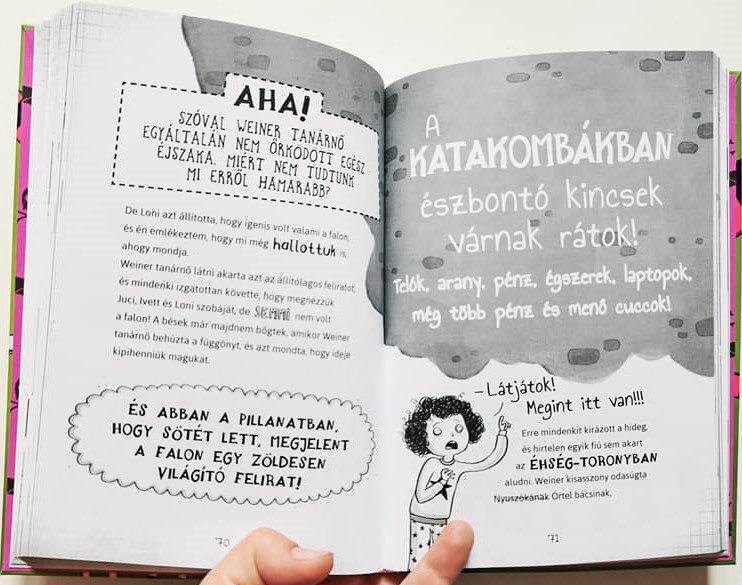 AHA!
SZÓVAL WEINER TANÁRNŐ
EGYÁLTALÁN NEM ŐRKÖDÖTT EGÉSZ
ÉJSZAKA. MIÉRT NEM TUDTUNK
MI ERRŐL HAMARABB?
De Loni azt állította, hogy igenis volt valami a falon,
és én emlékeztem, hogy mi még hallottuk is,
ahogy mondja.
Weiner tanárnő látni akarta azt az állítólagos feliratot,
és mindenki izgatottan követte, hogy megnézzük
Juci, Ivett és Loni szobáját, de SEMMI nem volt
a falon! A bések már majdnem bőgtek, amikor Weiner
tanárnő behúzta a függönyt, és azt mondta, hogy ideje
kipihenniük magukat.
ÉS ABBAN A PILLANATBAN,
HOGY SÖTÉT LETT, MEGJELENT
A FALON EGY ZÖLDESEN
VILÁGÍTÓ FELIRAT!
70
A
KATAKOMBÁKBAN
észbontó kincsek
várnak rátok!
Telók, arany, pénz, égszerek, laptopok,
még több pénz és menő cuccok!
–Látjátok!
Megint itt van!!!
Erre mindenkit kirázott a hideg,
és hirtelen egyik fiú sem akart
az ÉHSÉG-TORONYBAN
aludni. Weiner kisasszony odasúgta
Nyuszókának Örtel bácsinak,
71